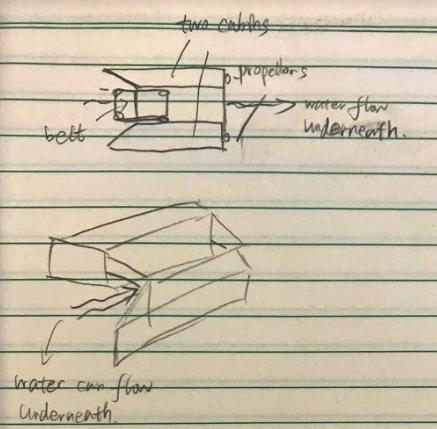 two cabins
propellors
water flow
underneath.
belt
water can flow
underneath.